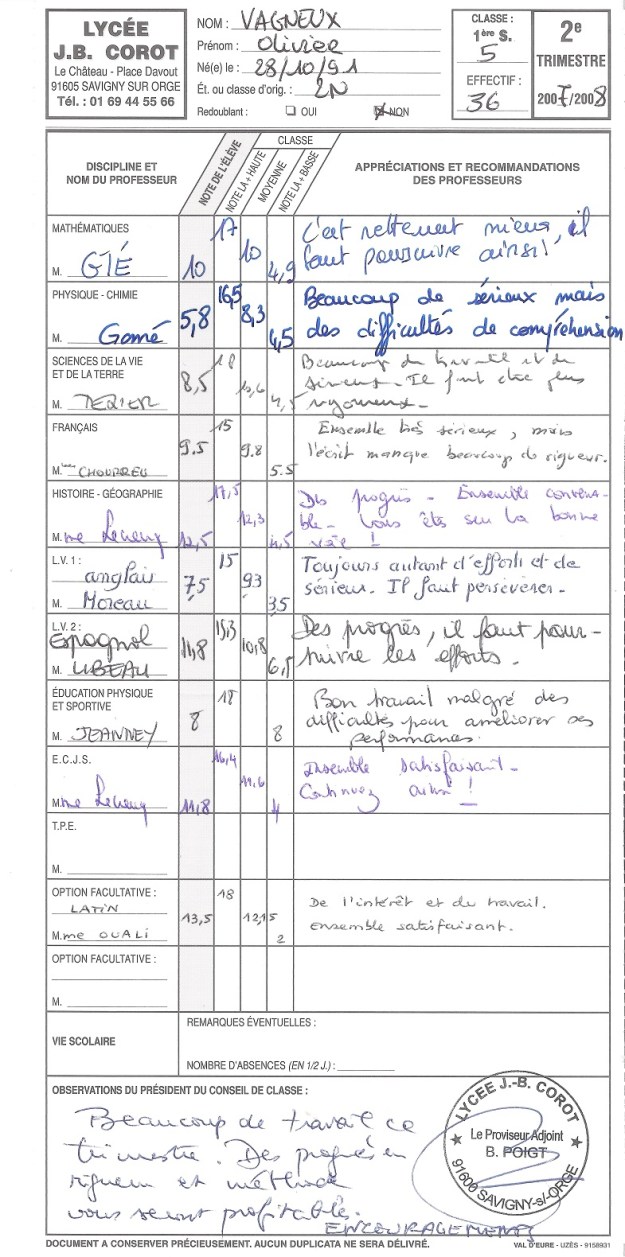 LYCÉE
J.B. COROT
Le Château - Place Davout
91605 SAVIGNY SUR ORGE
Tél. : 01 69 44 55 66
NOM : VAGNEUX
Prénom : Olivier
Né(e) le : 28/10/91
Ét. ou classe d'orig. : 2N
Redoublant : OUI NON
CLASSE :
1ère S.
5
EFFECTIF :
36
2e
TRIMESTRE
2007/2008
DISCIPLINE ET
NOM DU PROFESSEUR
NOTE DE L'ÉLÈVE
CLASSE
NOTE LA + HAUTE
MOYENNE
NOTE LA + BASSE
APPRÉCIATIONS ET RECOMMANDATIONS
DES PROFESSEURS
MATHÉMATIQUES
M. GIÉ
10 17 10 4,9
C'est nettement mieux, il
faut poursuivre ainsi!
PHYSIQUE - CHIMIE
M. Gomé
5,8 16,5 8,3 4,5
Beaucoup de sérieux mais
des difficultés de compréhension
SCIENCES DE LA VIE
ET DE LA TERRE
M.
8,5 18 4,5
Beaucoup de travail et de
sérieux. Il faut être plus
rigoureux.
FRANÇAIS
M.me
9.5 15 9.8 5.5
Ensemble très sérieux, mais
l'écrit manque beaucoup de rigueur.
HISTOIRE - GÉOGRAPHIE
M.me
12,5 17,5 12,3 4,5
Des progrès - Ensemble convena-
ble - Vous êtes sur la bonne
voie !
L.V. 1 :
anglais
M. Moreau
7,5 15 9,3 3,5
Toujours autant d'efforts et de
sérieux. Il faut persévérer.
L.V. 2 :
Espagnol
M. LIBEAU
11,8 15,3 10,8 6,5
Des progrès, il faut pour-
suivre les efforts.
ÉDUCATION PHYSIQUE
ET SPORTIVE
M. JEANNEY
8 18 8
Bon travail malgré des
difficultés pour améliorer ses
performances.
E.C.J.S.
M.me
11,8 16,4 11,6 4
Ensemble satisfaisant -
Continuez ainsi !
T.P.E.
M.
OPTION FACULTATIVE :
LATIN
M.me OUALI
13,5 18 12,15 2
De l'intérêt et du travail.
Ensemble satisfaisant.
OPTION FACULTATIVE :
M.
VIE SCOLAIRE
REMARQUES ÉVENTUELLES :
NOMBRE D'ABSENCES (EN 1/2 J.) :
OBSERVATIONS DU PRÉSIDENT DU CONSEIL DE CLASSE :
Beaucoup de travail ce
trimestre. Des progrès en
rigueur et méthode
vous seront profitables.
ENCOURAGEMENTS
LYCÉE J.-B. COROT
Le Proviseur Adjoint
B. POIGT
91600 SAVIGNY-s/-ORGE
DOCUMENT A CONSERVER PRÉCIEUSEMENT. AUCUN DUPLICATA NE SERA DÉLIVRÉ.
VAL D'EURE - UZÈS - 9158931